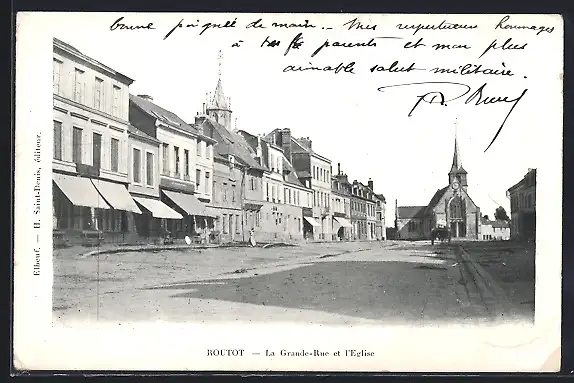 bonne poignée de main. - Mes respectueux hommages
à tes parents et mon plus
aimable salut militaire.
Elbeuf. — H. Saint-Denis, éditeur.
ROUTOT — La Grande-Rue et l'Eglise